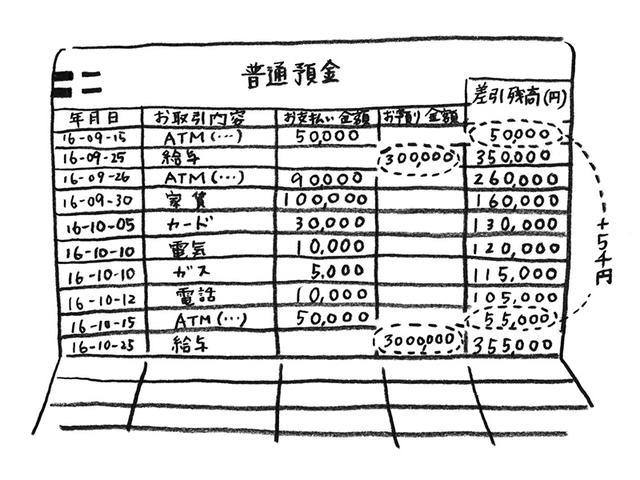 普通預金
差引残高(円)
年月日 お取引内容 お支払い金額 お預り金額
16-09-15 ATM(…) 50,000 50,000
16-09-25 給与 300,000 350,000
16-09-26 ATM(…) 90,000 260,000
16-09-30 家賃 100,000 160,000
16-10-05 カード 30,000 130,000
16-10-10 電気 10,000 120,000
16-10-10 ガス 5,000 115,000
16-10-12 電話 10,000 105,000
16-10-15 ATM(…) 50,000 55,000
16-10-25 給与 300,000 355,000
+5千円